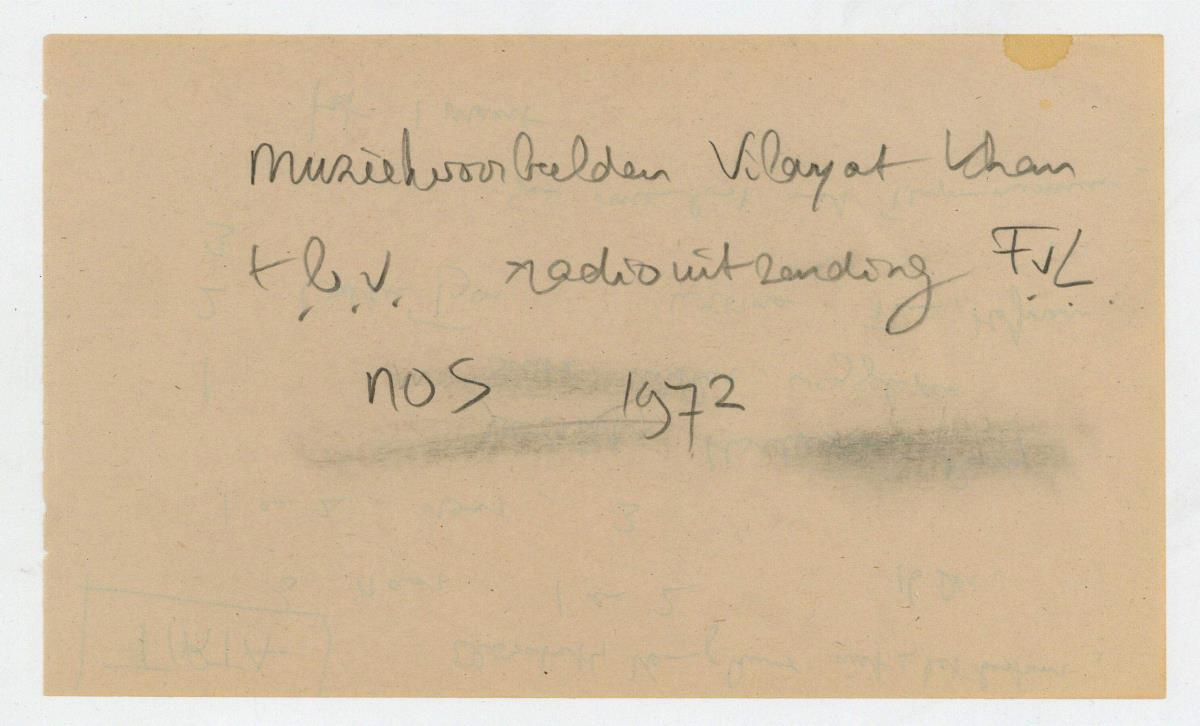 Muziekvoorbeelden Vilayat Khan
t.b.v. radiouitzending F.v.L.
NOS 1972